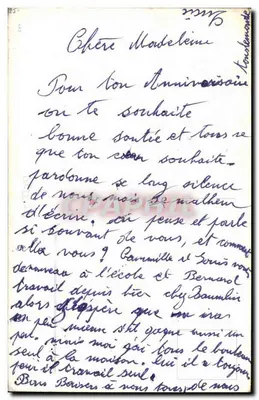 Chère Madeleine
Pour ton Anniversaire
on te souhaite
bonne santée et tous ce
que ton souhaite.
pardonne se long silence
de nous, mais malheur
d'écrire. on pense et parle
si souvent de vous, et comment
vous? Cammille et Louis vous
à l'école et Bernard
travail depuis chez
alors j'éspère que iras
un peu mieux gagne aussi un
peu. mais moi j'ai tous le
seul à la maison. lui il a toujour
pour il travail seul.
Bons Baisers à vous tous, de nous
tous